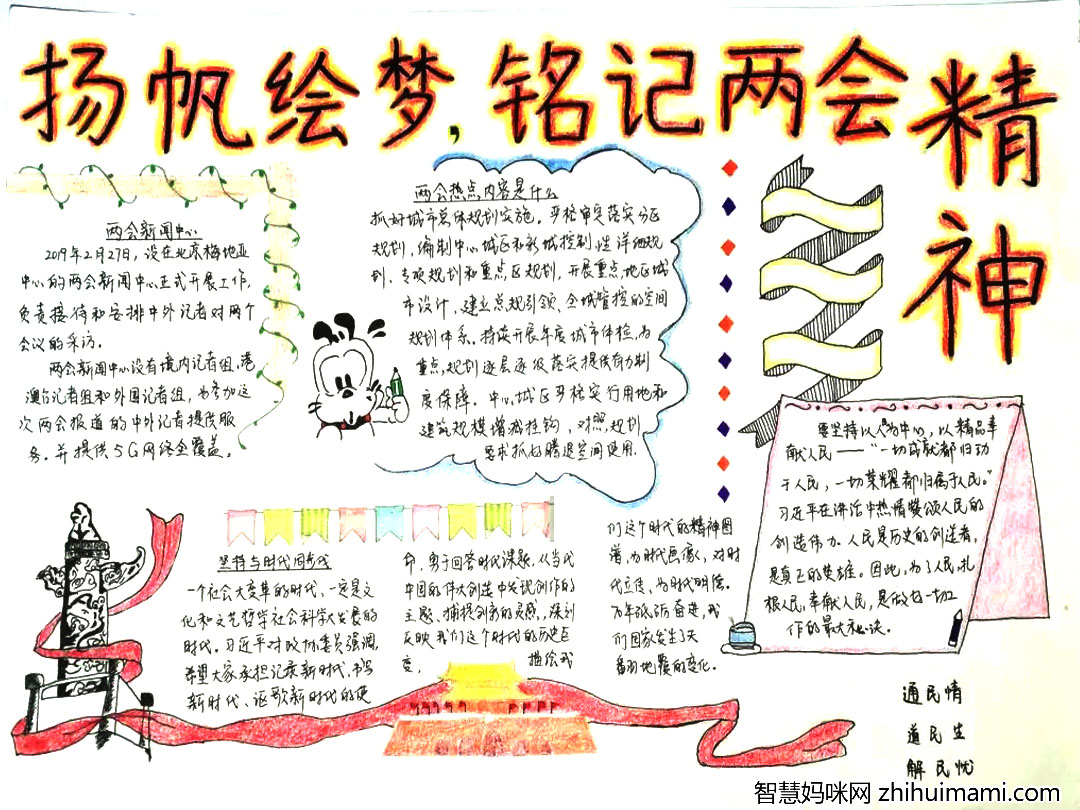 扬帆绘梦,铭记两会精
神
两会新闻中心
2019年2月27日,设在北京梅地亚
中心的两会新闻中心正式开展工作,
负责接待和安排中外记者对两个
会议的采访。
两会新闻中心设有境内记者组,港
澳台记者组和外国记者组,为参加这
次两会报道的中外记者提供服
务。并提供5G网络全覆盖。
两会热点内容是什么
抓好城市总体规划实施。严格审定落实分区
规划,编制中心城区和新城控制性详细规
划、专项规划和重点区规划,开展重点地区城
市设计,建立总规引领、全域管控的空间
规划体系。持续开展年度城市体检,为
重点,规划逐层逐级落实提供有力制
度保障。中心城区严格实行用地和
建筑规模增减挂钩,对照规划
要求抓好腾退空间使用.
要坚持以人为中心,以精品奉
献人民——"一切成就都归功
于人民,一切荣耀都归属于人民。"
习近平在讲话中热情赞颂人民的
创造伟力。人民是历史的创造者,
是真正的英雄。因此,为了人民,扎
根人民,奉献人民,是做好一切工
作的最大秘诀。
坚持与时代同步伐
一个社会大变革的时代,一定是文
化和文艺哲学社会科学大发展的
时代。习近平对政协委员强调,
希望大家承担记录新时代,书写
新时代、讴歌新时代的使
命,勇于回答时代课题,从当代
中国的伟大创造中发现创作的
主题、捕捉创新的灵感,深刻
反映我们这个时代的历史巨
变, 描绘我
们这个时代的精神图
谱,为时代画像,对时
代立传、为时代明德。
万年砥砺奋进,我
们国家发生了天
翻地覆的变化。
通民情
道民生
解民忧
智慧妈咪网 zhihuimami.com